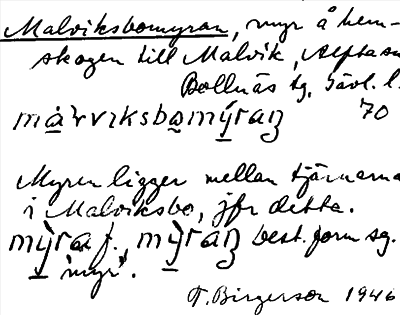 Malviksbomyran, myr å hem-
skogen till Malvik, Alfta sn
Bollnäs tg, Gävl. l.
70
Myren ligger mellan tjärnarna
i Malviksbo, jfr detta.
mỳra f., mỳraɳ best. form sg.
"myr".
F. Birgerson 1946